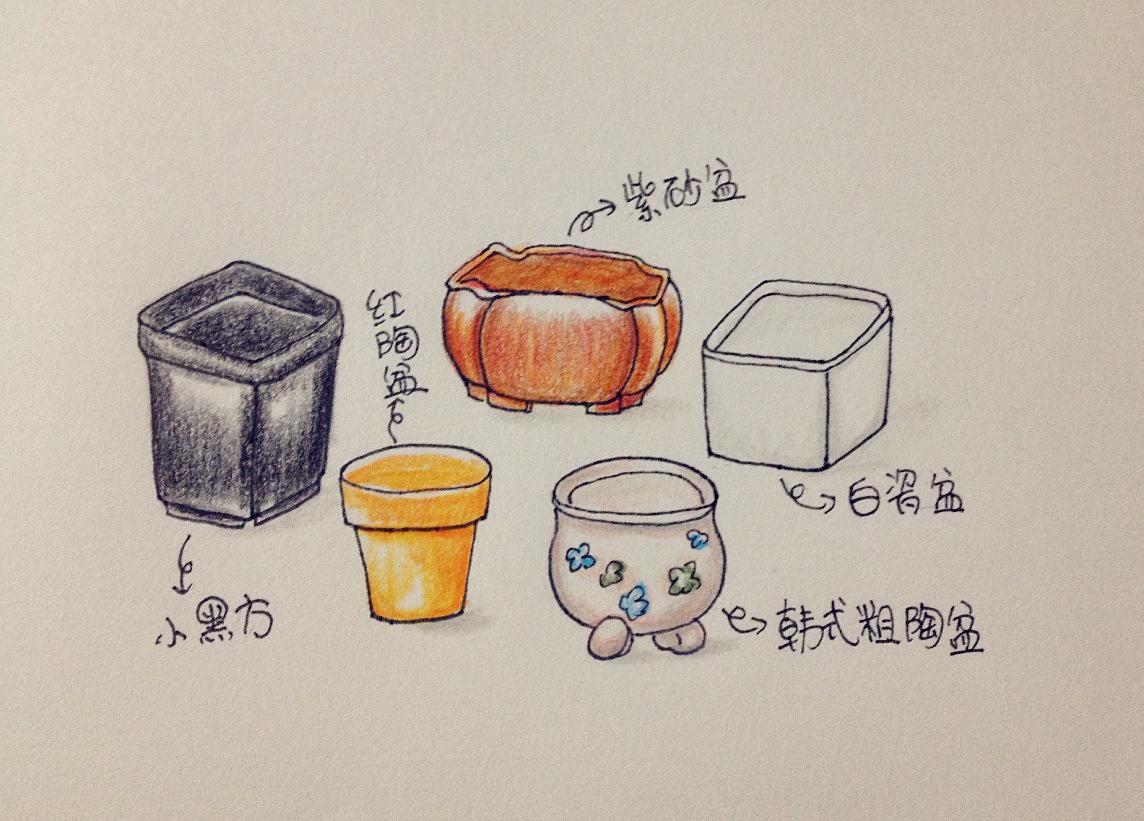 紫砂盆
红陶盆
白瓷盆
小黑方
韩式粗陶盆